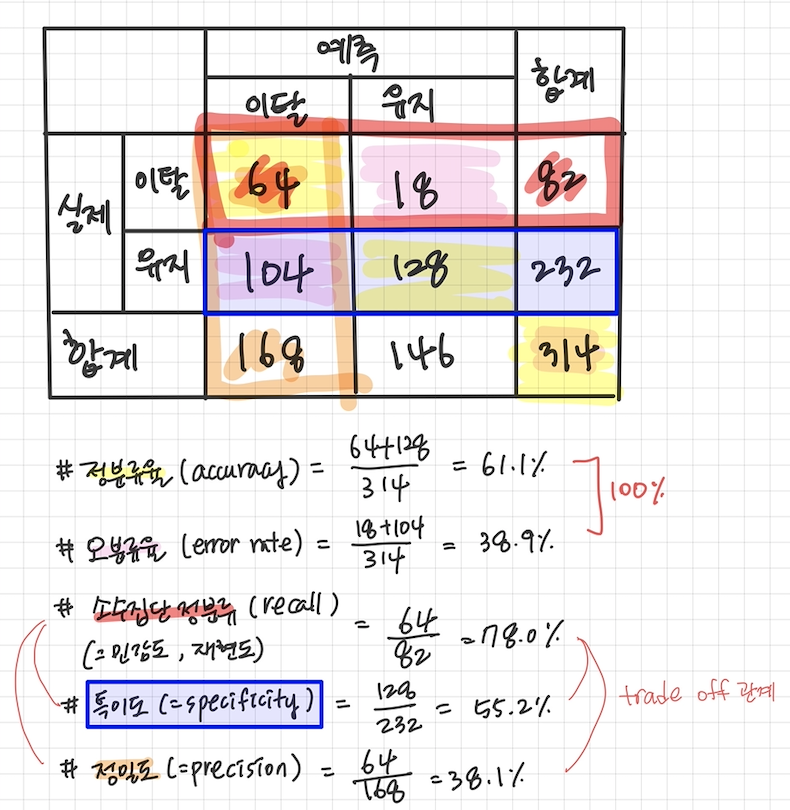 예측
합계
이탈 유지
실제 이탈 64 18 82
유지 104 128 232
합계 168 146 314
# 정분류율 (accuracy) = 64+128 / 314 = 61.1%
100%
# 오분류율 (error rate) = 18+104 / 314 = 38.9%
# 소수집단 정분류 (recall) = 64 / 82 = 78.0%
(=민감도, 재현도)
# 특이도 (=specificity) = 128 / 232 = 55.2%
trade off 관계
# 정밀도 (=precision) = 64 / 168 = 38.1%